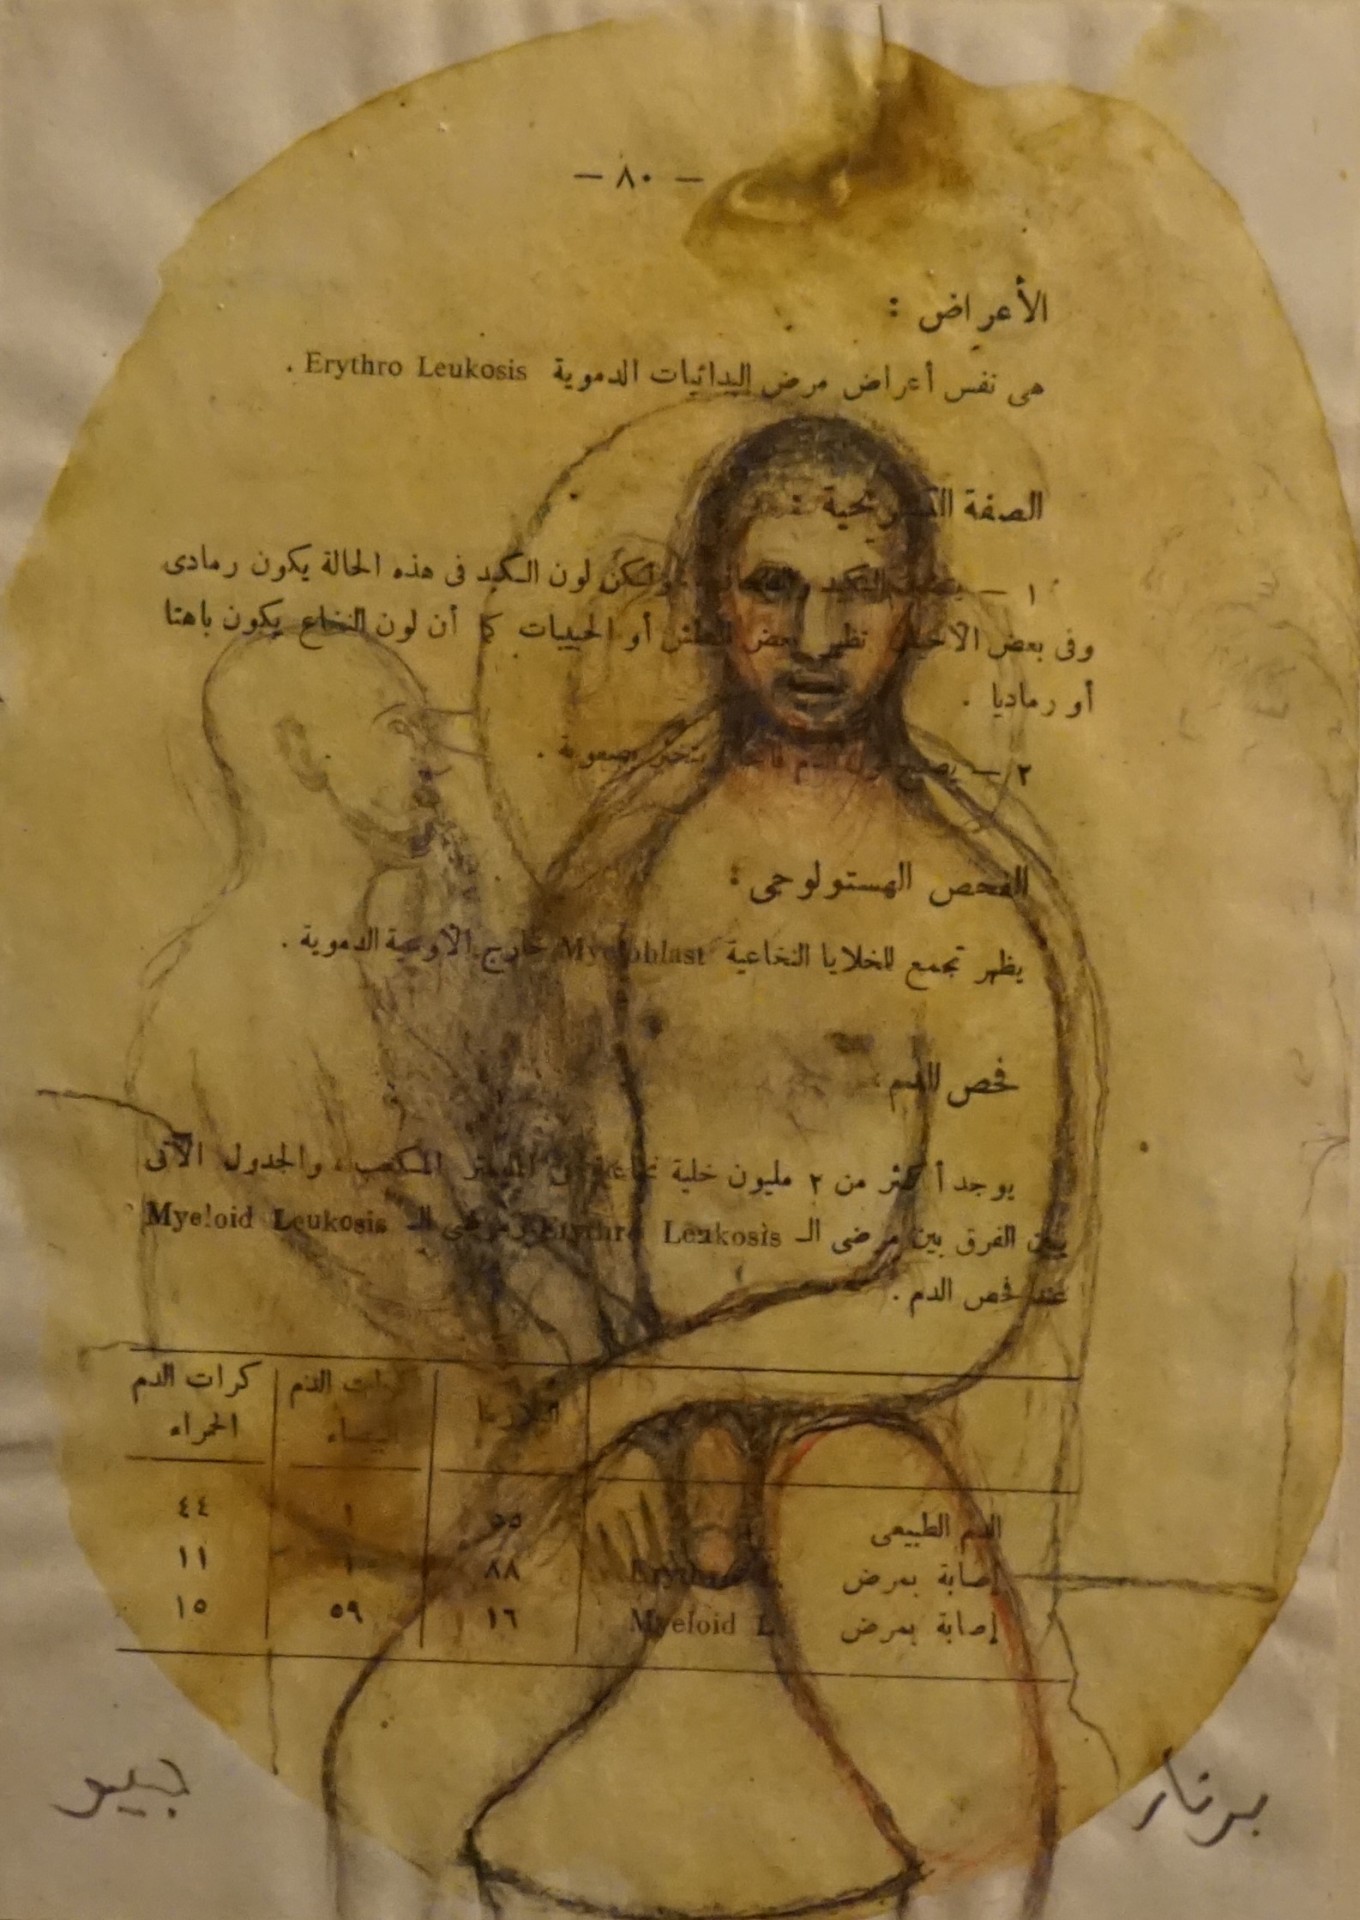 — ٨٠ —
الأعراض :
هى نفس أعراض مرض البدائيات الدموية Erythro Leukosis .
الصفة التشريحية :
١ — الكبد ولكن لون الكبد فى هذه الحالة يكون رمادى
وفى بعض الأحيان تظهر بعض أو الحبيبات كما أن لون النخاع يكون باهتا
أو رماديا .
٢ — بصعوبة .
الفحص الهستولوجى :
يظهر تجمع للخلايا النخاعية Myeloblast خارج الأوعية الدموية .
فحص الدم :
يوجد أكثر من ٢ مليون خلية المكعب ، والجدول الآتى
يبين الفرق بين مرضى الـ Erythro Leukosis ومرضى الـ Myeloid Leukosis
عند فحص الدم .
كرات الدم البيضاء كرات الدم الحمراء
الدم الطبيعى ٥٥ ١ ٤٤
إصابة بمرض Erythro L. ٨٨ ١ ١١
إصابة بمرض Myeloid L. ١٦ ٥٩ ١٥
برنار جييو